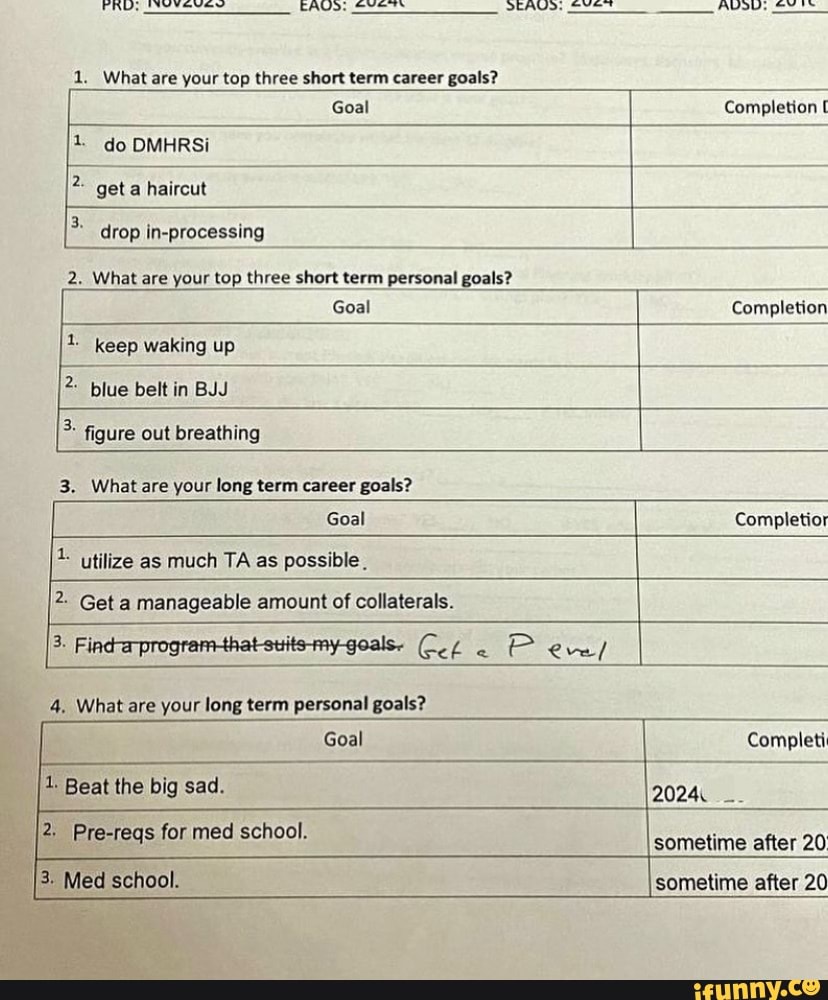 PRD: NOV2023 EAOS: 2024 SEAOS: 2024 ADSD:
1. What are your top three short term career goals?
Goal Completion
1. do DMHRSi
2. get a haircut
3. drop in-processing
2. What are your top three short term personal goals?
Goal Completion
1. keep waking up
2. blue belt in BJJ
3. figure out breathing
3. What are your long term career goals?
Goal Completion
1. utilize as much TA as possible.
2. Get a manageable amount of collaterals.
3. Find a program that suits my goals. Get a P eval
4. What are your long term personal goals?
Goal Completi
1. Beat the big sad. 2024
2. Pre-reqs for med school. sometime after 20
3. Med school. sometime after 20
ifunny.co